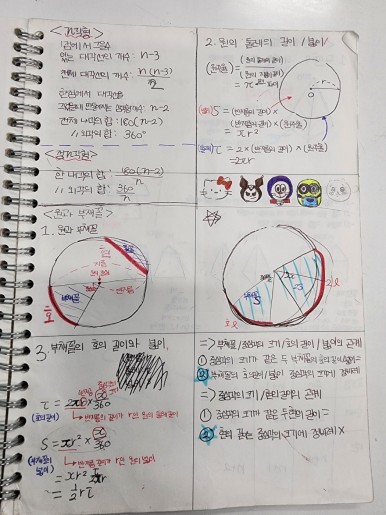 <다각형>
1점에서 그을수
있는 대각선의 개수: n-3
전체 대각선의 개수: n(n-3)/2
한점에서 대각선
그었을때 만들어지는 삼각형개수: n-2
전체 내각의 합: 180(n-2)
// 외각의 합: 360°
<정다각형>
한 내각의 합: 180(n-2)/n
// 외각의 합: 360/n
<원과 부채꼴>
1. 원과 부채꼴
현
지름
중심각
반지름
부채꼴
호
2. 원의 둘레의 길이 / 넓이
(원주율) =
= π
r
O
(넓이) S = (반지름의 길이) × (반지름의 길이) × (원주율)
= πr²
(둘레) l = 2 × (반지름의 길이) × (원주율)
= 2πr
S
2S
x
2x
호 l
2l
3. 부채꼴의 호의 길이와 넓이
l = 2πr × x/360
(호의 길이)
↳ 반지름 길이가 r인 원의 둘레 길이
S = πr² × x/360
(부채꼴의 넓이)
↳ 반지름 길이가 r인 원의 넓이
= 1/2 rl
⇒ 부채꼴 중심각의 크기 / 호의 길이 / 넓이의 관계
① 중심각의 크기가 같은 두 부채꼴의 호의 길이/넓이=
② 부채꼴의 호의 길이 / 넓이 중심각의 크기에 정비례
⇒ 중심각의 크기 / 현의 길이의 관계
① 중심각의 크기가 같은 두 현의 길이=
② 현의 길이는 중심각의 크기에 정비례 ×